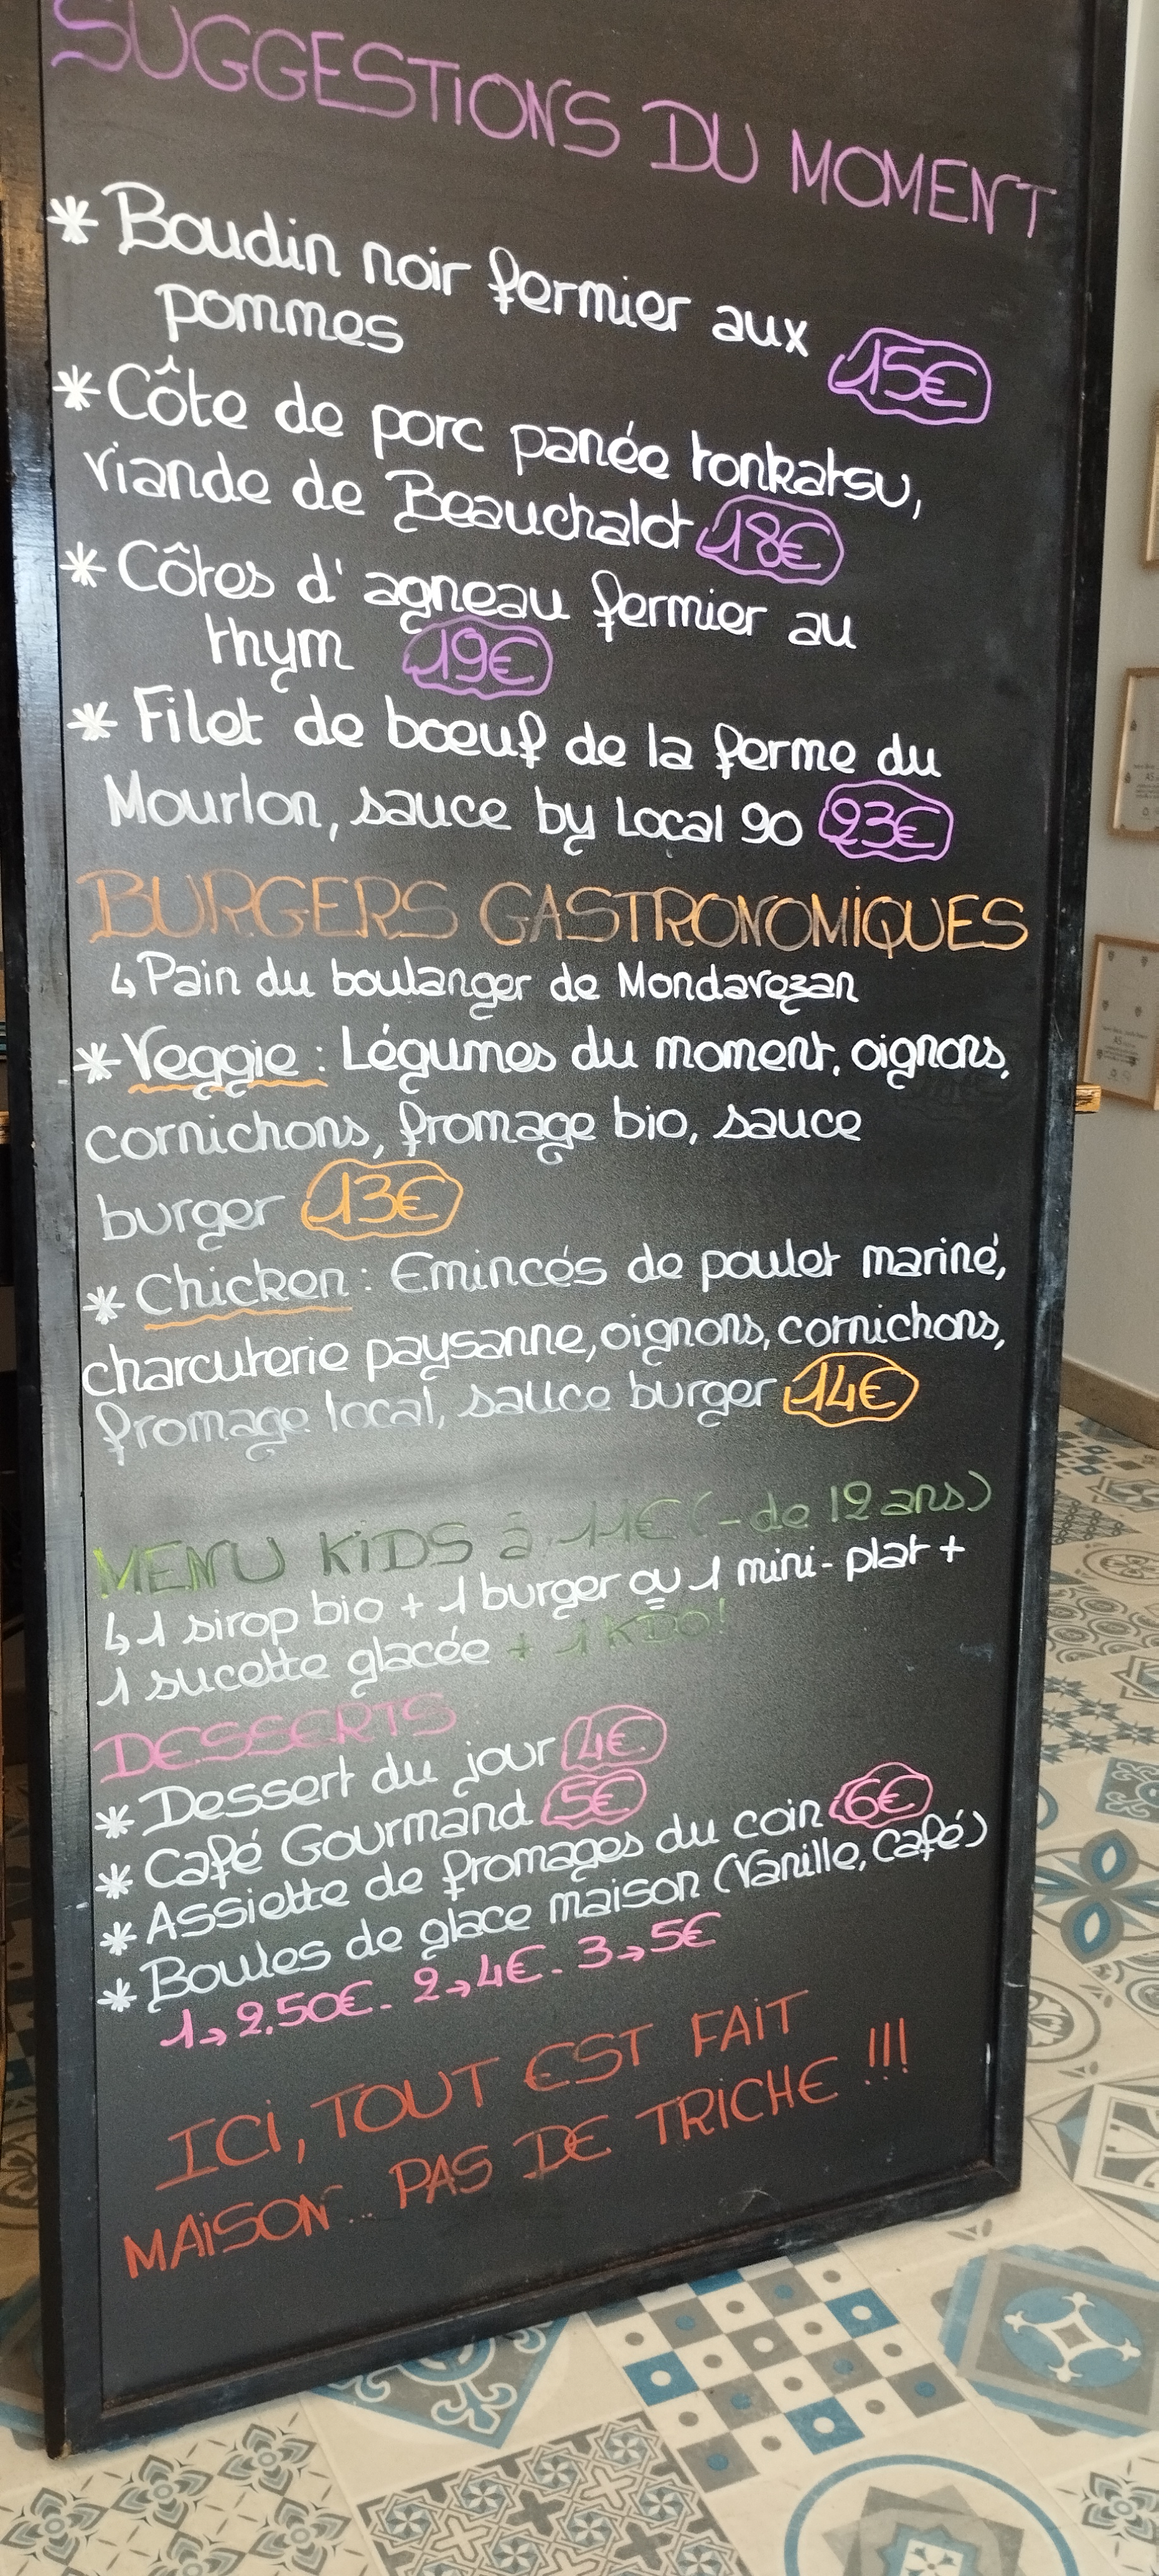 SUGGESTIONS DU MOMENT
* Boudin noir fermier aux
pommes 15€
* Côte de porc panée tonkatsu,
viande de Beauchalot 18€
* Côtes d'agneau fermier au
thym 19€
* Filet de bœuf de la ferme du
Mourlon, sauce by Local 90 23€
BURGERS GASTRONOMIQUES
↳ Pain du boulanger de Mondavezan
* Veggie : Légumes du moment, oignons,
cornichons, fromage bio, sauce
burger 13€
* Chicken : Emincés de poulet mariné,
charcuterie paysanne, oignons, cornichons,
fromage local, sauce burger 14€
MENU KIDS à 11€ (- de 12 ans)
↳ 1 sirop bio + 1 burger ou 1 mini-plat +
1 sucette glacée + 1 KDO!
DESSERTS
* Dessert du jour 4€
* Café Gourmand 5€
* Assiette de fromages du coin 6€
* Boules de glace maison (Vanille, Café)
1→2,50€ - 2→4€ - 3→5€
ICI, TOUT EST FAIT
MAISON... PAS DE TRICHE !!!